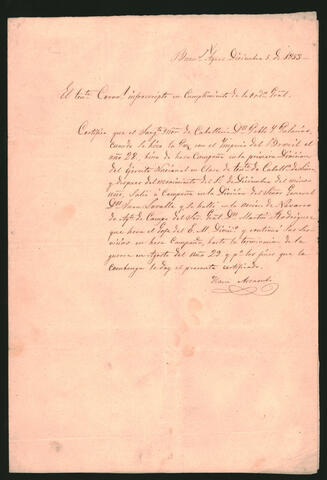 Buen.s Ayres Diciembre 5 de 1853
El tente Coron.l infrascripto en Cumplimiento de la ord.n Gral.
Certifica que el Sarg.to Mor. de Caballeria D.n Pablo Y Palacios,
cuando se hizo la Paz con el Imperio del Brasil el
año 28, hizo de hera Campaña en la primera Division
del Ejercito Nacional en Clase de tent.e de Caball.a de
y despues del movimiento del 1.º de Diciembre del mismo
año, Salió a Campaña en la Division del Señor General
D.n Juan Lavalle y se halló en la accion de Navarro
de Ay.te de Campo del Sor. Gral. D.n Martin Rodriguez
que hera el Gefe del E. M. Divis.o y continuó sus Ser-
vicios en hera Campaña, hasta la terminacion de la
guerra en Agosto del año 29 y p.a los fines que le
combenga le doy el presente certificado.